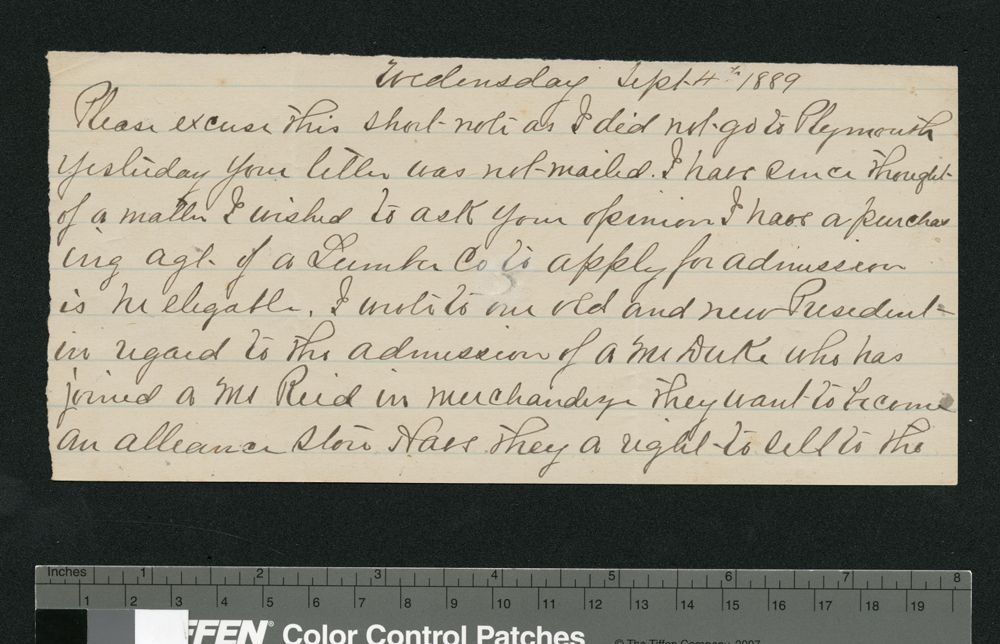 Wedensday Sept 4th 1889
Please excuse this short note as I did not go to Plymouth
yestuday your letter was not mailed. I have since thought
of a matter I wished to ask your opinion I have a purchas
ing agt. of a Lumber Co to apply for admission
is he elegable. I wrote to our old and new President
in regard to the admission of a Mr Duke who has
joined a Mr Reid in merchandize they want to become
an alleance store Have they a right to sell to the
Inches 1 2 3 4 5 6 7 8
1 2 3 4 5 6 7 8 9 10 11 12 13 14 15 16 17 18 19
FFEN® Color Control Patches
© The Tiffen Company, 2007